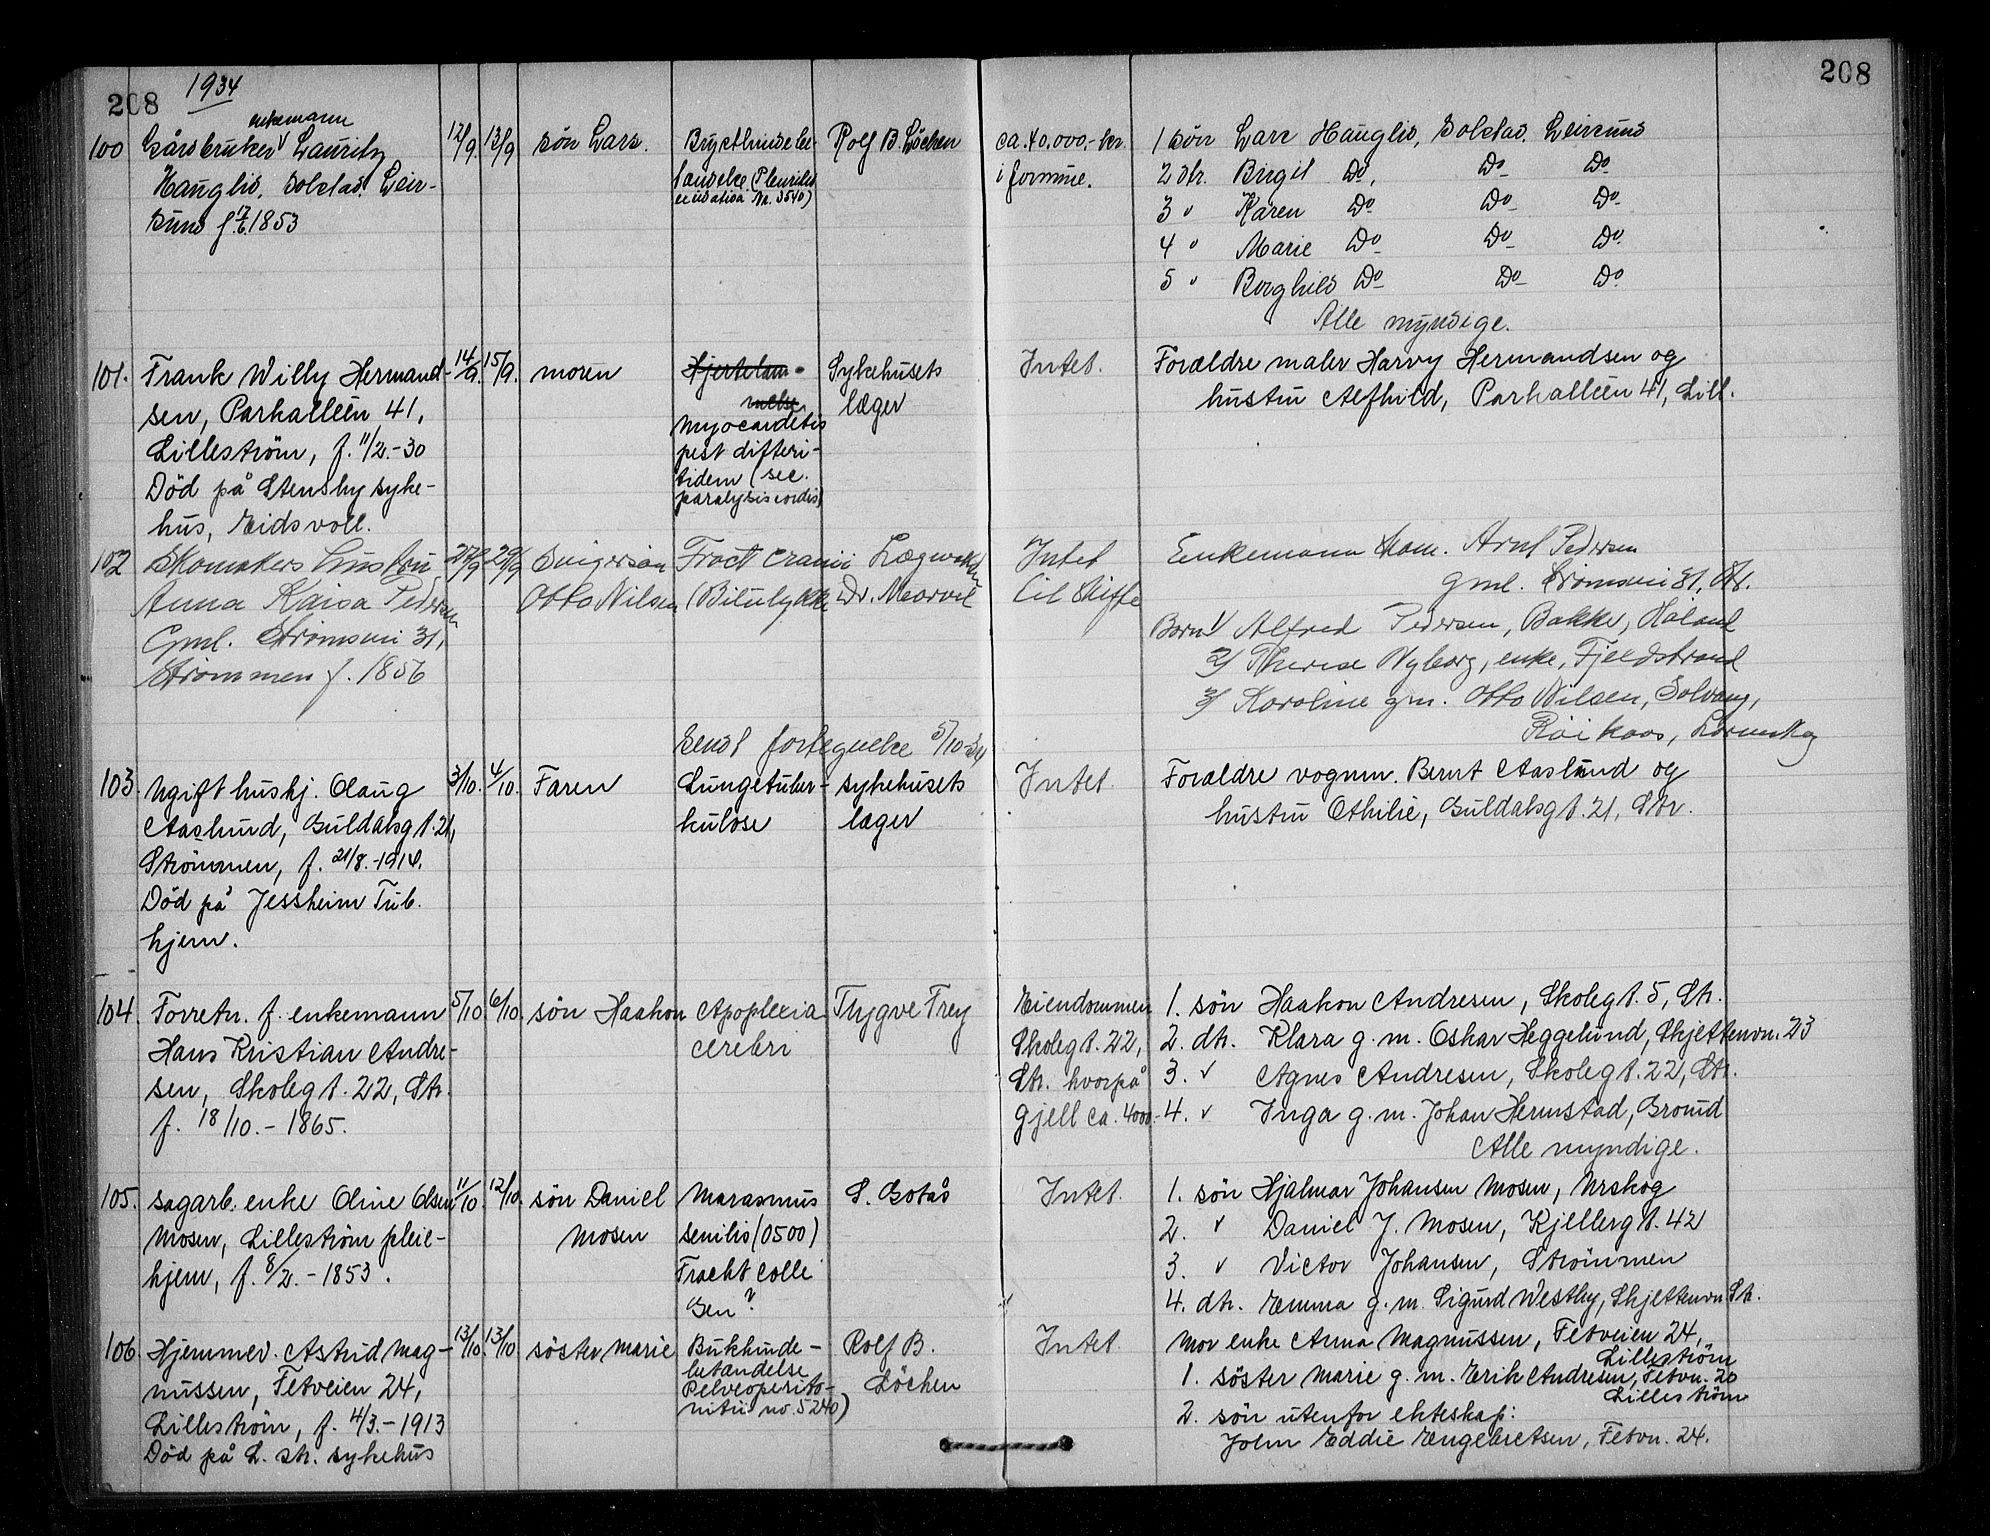 208
1934
208
enkemann
100 Gårdbruker Lauritz
Hauglid, Solstad, Leir-
sund f. 17/6. 1853
12/9. 13/9
søn Lars.
Brysthindebe-
tændelse (Pleuritis
exudativa Nr. 3540)
Rolf B. Löchen
ca. 40.000,- kr.
i formue.
1 søn Lars Hauglid, Solstad Leirsund
2 dtr. Birgit Do, Do Do
3 " Karen Do Do Do
4 " Marie Do Do Do
5 " Borghild Do Do Do
Alle myndige.
101. Frank Willy Hermand-
sen, Parkalleén 41,
Lilleström, f. 11/2.-30
Död på Stensby syke-
hus, Eidsvoll.
14/9. 15/9.
moren
Hjertelam-
melse
Myocarditis
post difteri-
tidem (sec.
paralysis cordis)
Sykehusets
læger
Intet.
Forældre maler Harry Hermandsen og
hustru Alfhild, Parkalleén 41, Lill.
102 Skomakers hustru
Anna Kaisa Pedersen
Gml. Strømsvei 31,
Strømmen f. 1856
27/9 29/9
Svigersøn
Otto Nilsen
Fract cranii
(Bilulykke
Lægevakten
Dr. Morvil
Intet
til Skifte
Enkemann Sam. Arnt Pedersen
gml. Strømsvei 31, Str.
Barn 1/ Alfred Pedersen, Bakke, Høland
2/ Therese Nyborg, enke, Fjeldstrand
3/ Karoline gm. Otto Nilsen, Solvang,
Röikaas, Lørenskog
Sendt fortegnelse 5/10-34
103 Ugift huskj. Olaug
Aaslund, Guldalsgt. 21,
Strömmen, f. 21/8.-1914.
Död på Jessheim Tub.
hjem.
3/10. 4/10.
Faren
Lungetuber-
kulose
sykehusets
læger
Intet.
Forældre vognm. Bernt Aaslund og
hustru Othilie, Guldalsgt. 21, Str.
104. Forretn. f. enkemann
Hans Kristian Andre-
sen, Skolegt. 22, Str.
f. 18/10.-1865.
5/10 6/10.
søn Haakon
Apoplexia
cerebri
Trygve Frey
Eiendommen
Skolegt. 22,
Str. hvorpå
gjeld ca. 4000.-
1. søn Haakon Andresen, Skolegt. 5, Str.
2. dtr. Klara g. m. Oskar Heggelund, Skjettenvn. 23
3. " Agnes Andresen, Skolegt. 22, Str.
4. " Inga g. m. Johan Hermstad, Grorud
Alle myndige.
105. sagarb. enke Oline Olsen
Mosen, Lilleström pleie-
hjem, f. 8/2.-1853.
11/10. 12/10.
søn Daniel
Mosen
Marasmus
senilis (0500)
Fracht colli
Gen?
S. Gotås
Intet.
1. søn Hjalmar Johansen Mosen, Urskog
2. " Daniel J. Mosen, Kjellergt. 42
3. " Victor Johansen, Strömmen
4. dtr. Emma g. m. Sigurd Westby, Skjettenvn. Str.
106 Hjemmev. Astrid Mag-
nussen, Fetveien 24,
Lilleström, f. 4/3.-1913
Död på L. str. sykehus
13/10. 13/10
söster Marie
Bukhinde-
betændelse
Pelveoperito-
nitis no. 5240)
Rolf B.
Löchen
Intet
Mor enke Anna Magnussen, Fetveien 24,
Lilleström
1. söster Marie g. m. Erik Andresen, Fetvn. 20
Lilleström
2. sön utenfor ekteskap:
John Eddie Engebretsen, Fetvn. 24.